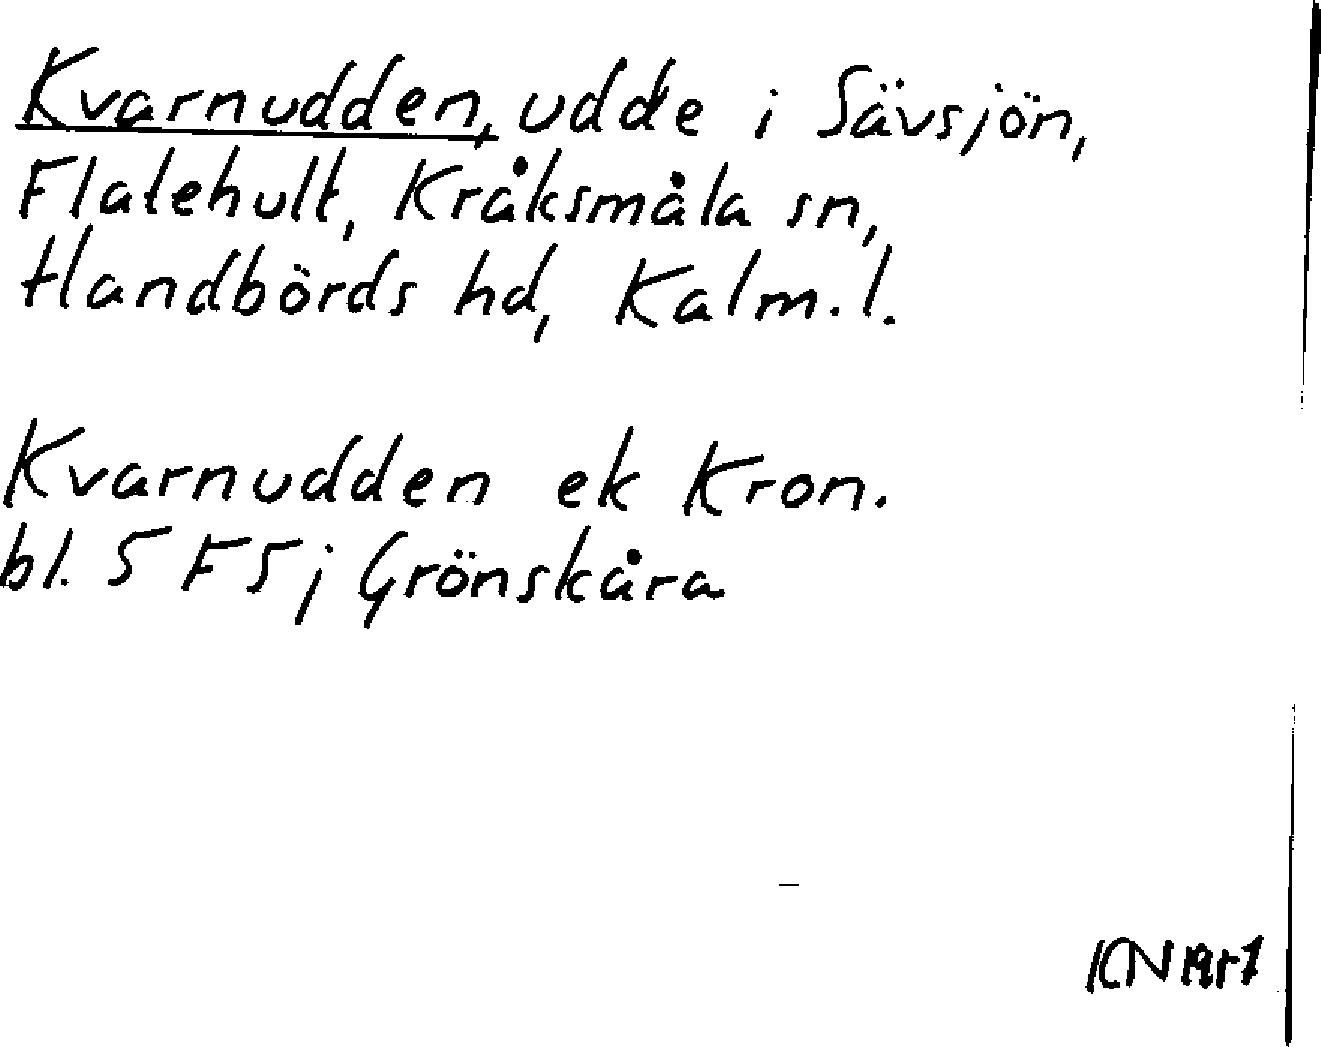 Kvarnudden, udde i Sävsjön,
Flatehult, Kråksmåla sn,
Handbörds hd, Kalm.l.
Kvarnudden ek Kron.
bl. 5 F 5 j Grönskåra
KN